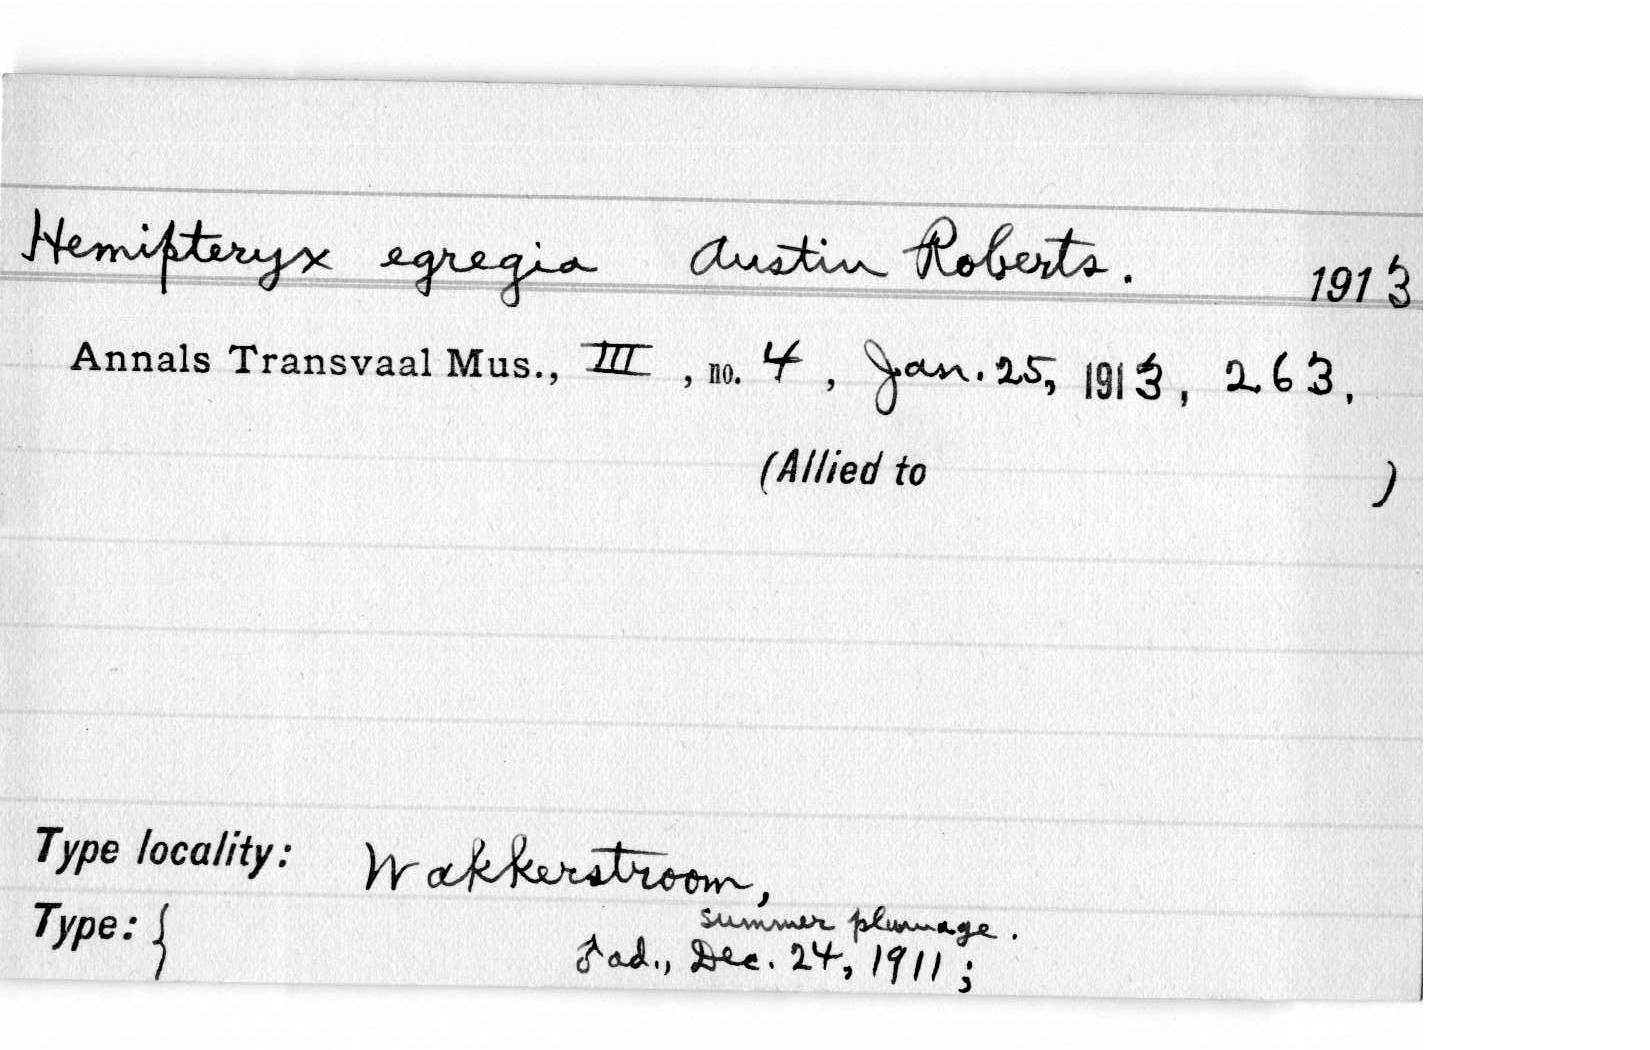 Hemipteryx egregia Austin Roberts. 1913
Annals Transvaal Mus., III, no. 4, Jan. 25, 1913, 263.
(Allied to )
Type locality: Wakkerstroom,
summer plumage.
Type: { ♂ ad., Dec. 24, 1911;